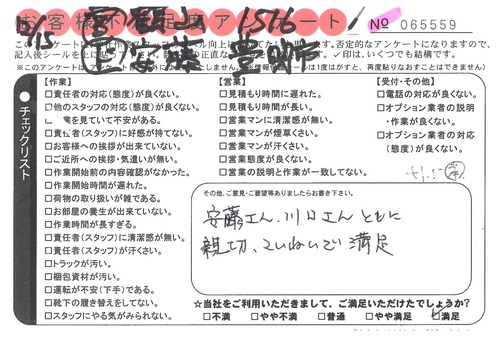 お客様不満足度アンケート
№ 065559
12/15
1516
記入後シールを上に
【作業】
□責任者の対応(態度)が良くない。
□他のスタッフの対応(態度)が良くない。
を見ていて不安がある。
□責任者(スタッフ)に好感が持てない。
□お客様への挨拶が出来ていない。
□ご近所への挨拶・気遣いが無い。
□作業開始前の内容確認がなかった。
□作業開始時間が遅れた。
□荷物の取り扱いが雑である。
□お部屋の養生が出来ていない。
□作業時間が長すぎる。
□責任者(スタッフ)に清潔感が無い。
□責任者(スタッフ)が汗くさい。
□トラックが汚い。
□梱包資材が汚い。
□運転が不安(下手)である。
□靴下の履き替えをしてない。
□スタッフにやる気がみられない。
チェックリスト
【営業】
□見積もり時間に遅れた。
□見積もり時間が長い。
□営業マンに清潔感が無い。
□営業マンが煙草くさい。
□営業マンが汗くさい。
□営業態度が良くない。
□営業の説明と作業が一致してない。
【受付・その他】
□電話の対応が良くない。
□オプション業者の説明
・作業が良くない。
□オプション業者の対応
(態度)が良くない。
その他、ご意見・ご要望等ありましたらお書き下さい。
安藤さん、川口さん ともに
親切、ていねいで 満足
☆当社をご利用いただきまして、ご満足いただけたでしょうか?
□不満 □やや不満 □普通 □やや満足 □満足